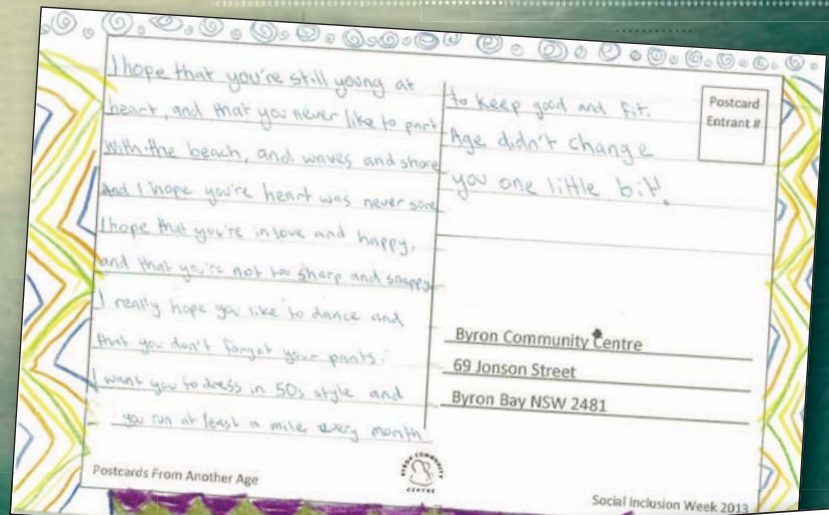 I hope that you're still young at
heart, and that you never like to part
with the beach, and waves and shore
And I hope you're heart was never sore
I hope that you're in love and happy,
and that you're not too sharp and snappy
I really hope you like to dance and
that you don't forget your pants.
I want you to dress in 50s style and
you run at least a mile every month
to keep good and fit.
Age didn't change
you one little bit!
Postcard
Entrant #
Byron Community Centre
69 Jonson Street
Byron Bay NSW 2481
Postcards From Another Age
BYRON COMMUNITY
CENTRE
Social Inclusion Week 2013